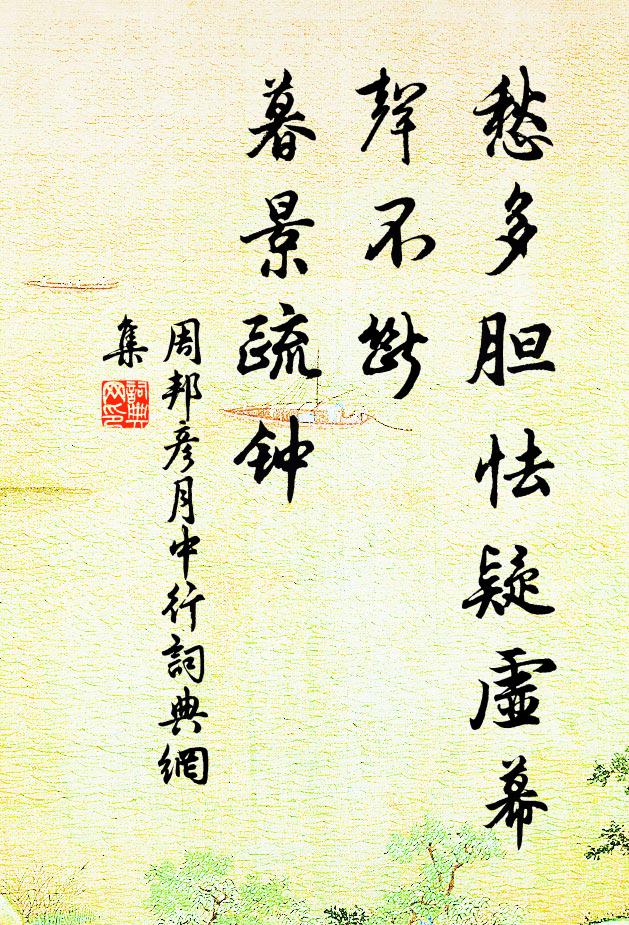 愁多胆怯疑虛幕
聲不斷
暮景疏钟
周邦彦月中行詞典網
集
詞典
网印